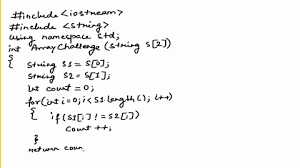 #include <iostream>
#include <string>
using namespace std;
int ArrayChallenge (string S[2])
{ string S1 = S[0];
string S2 = S[1];
int count = 0;
for(int i=0; i<S1.length(); i++)
{ if(S1[i] != S2[i])
count ++;
}
return coun